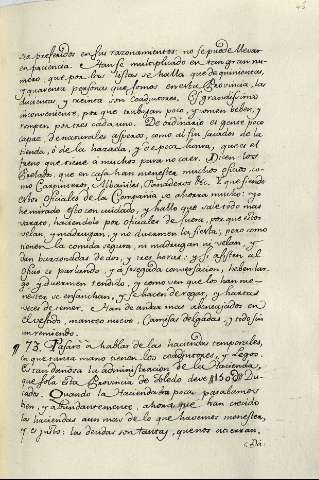 ser preferidos en sus razonamientos; no se puede llevar
en paciencia. Hanse multiplicado en tan gran nu-
mero, que por las listas se halla que de quinientas,
y quarenta personas que somos en esta Provincia, las
ducientas y treinta son coadjutores. Es gravissimo
inconveniente, porque trabajan poco, y comen, beben, y
rompen por tres cada uno. De ordinario es gente poco
capaz, de naturales asperos, como al fin sacados de la
tienda, ò de la hazada, y de poca honra, que es el
freno que tiene à muchos para no caer. Dicen los
Prelados, que en casa han menester muchos oficios, co-
mo Carpinteros, Albañiles, Panaderos &c. Y que siendo
estos Oficiales de la Compañia se ahorra mucho: yo
he mirado esto con cuidado, y hallo que sale todo mas
varato, haciendolo por oficiales de fuera, por que estos
velan, y madrugan, y no duermen la siesta; pero como
tienen la comida segura, ni madrugan ni velan, y
dan de dos, y tres horas: y si asisten al
oficio es parlando, y à sosegada conversacion, beben lar-
go y duermen tendido, y como ven que los han me-
nester, se ensanchan, y se hacen de rogar, y hartas
veces de temer. Han de andar mas abentajados en
el vestido, manteo nuevo, Camisas delgadas, y todo sin
un remiendo.
¶ 73. Passaré à hablar de las haciendas temporales,
en que tanta mano tienen los coadjutores, y Legos.
Es tan dañosa la administracion de la Hacienda,
que sola esta Provincia de Toledo deve Du-
cados. Quando la Hacienda era poca passabamos
bien, y abundantemente, ahora que han crecido
las haciendas aun mas de lo que havemos menester,
y es justo: las deudas son tantas, que nos acierran.